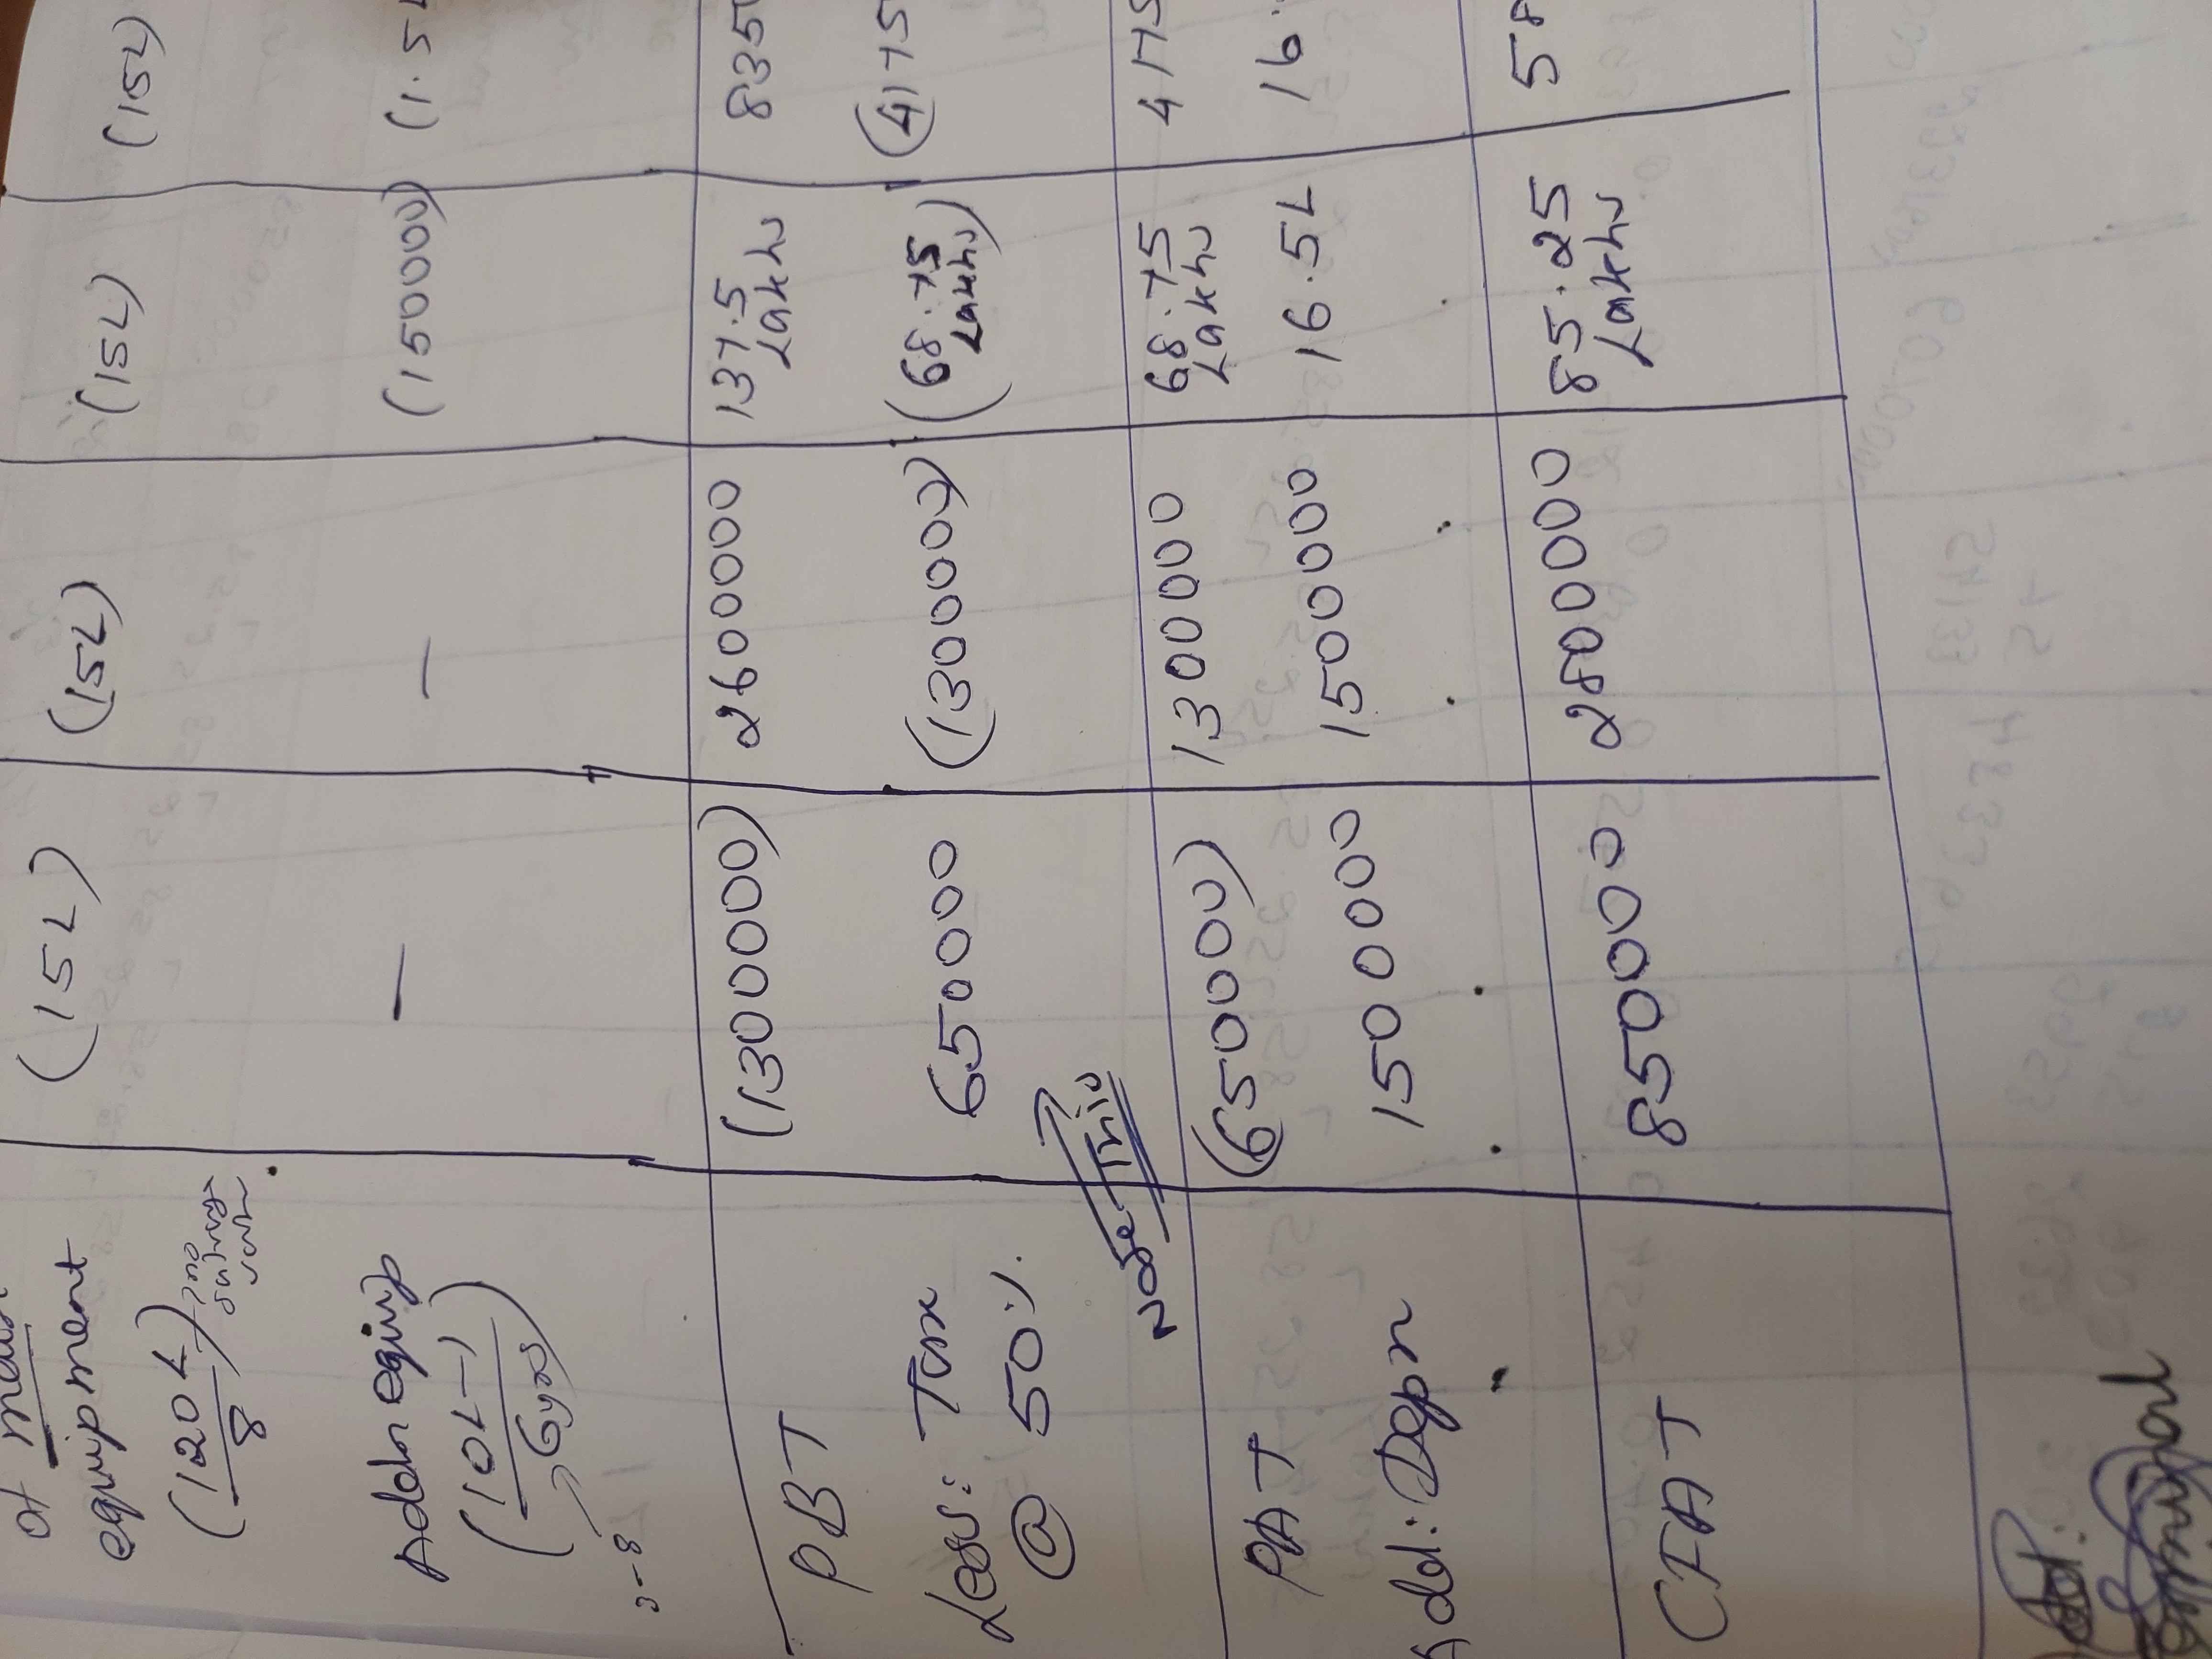 of main
equipment (15L) (15L) (15L) (15L)
(120L / 8) no salvage
Addn eqip — — (150000) (1.5L
(10L-1 / 6yrs)
3-8
PBT (1300000) 2600000 137.5 Lakhs 835
Less: Tax @ 50% 650000 (1300000) (68.75 Lakhs) (4175
Note This
PAT (650000) 1300000 68.75 Lakhs 4175
Add: Depn 1500000 1500000 16.5L 16.
CFAT 850000 2800000 85.25 Lakhs 58